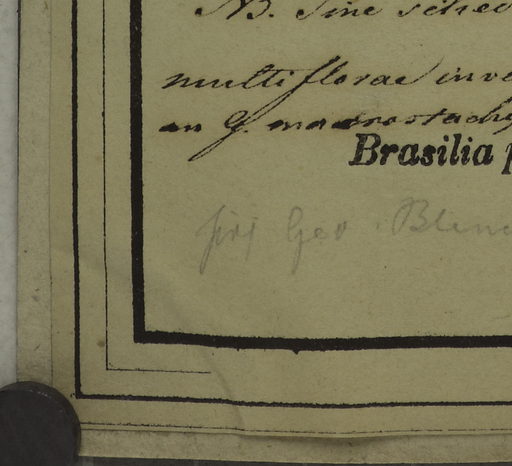 NB. Sine sched
multiflorae inve
an G. macrostachy
Brasilia p
Geo. Blen